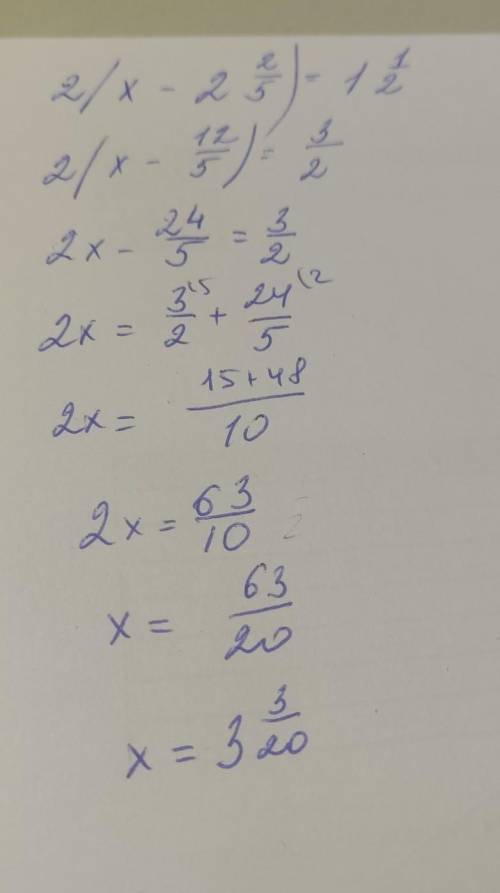 2(x - 2 2/5) = 1 1/2
2(x - 12/5) = 3/2
2x - 24/5 = 3/2
2x = 3/2 (5 + 24/5 (2
2x = 15+48/10
2x = 63/10
x = 63/20
x = 3 3/20